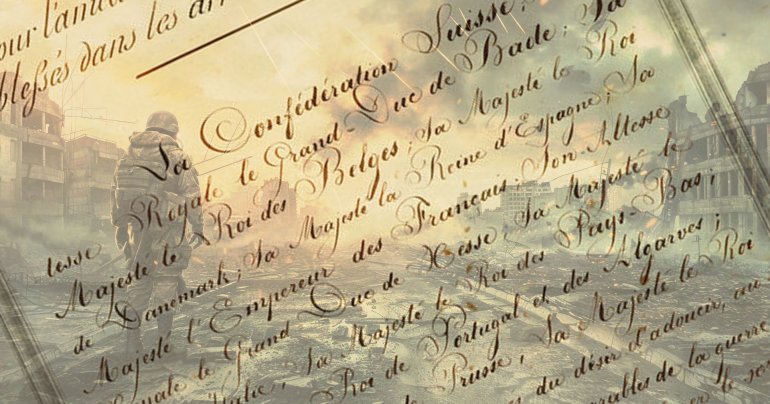 pour l'amé
blessés dans les ar
La Confédération Suisse;
tesse Royale le Grand-Duc de Bade; Sa
Majesté le Roi des Belges; Sa Majesté le Roi
de Danemark; Sa Majesté la Reine d'Espagne; Sa
Majesté l'Empereur des Français; Son Altesse
Royale le Grand Duc de Hesse; Sa Majesté le
Italie; Sa Majesté le Roi des Pays-Bas;
Roi de Portugal et des Algarves;
de Prusse, Sa Majesté le Roi
du désir d'adoucir, au
de la guerre